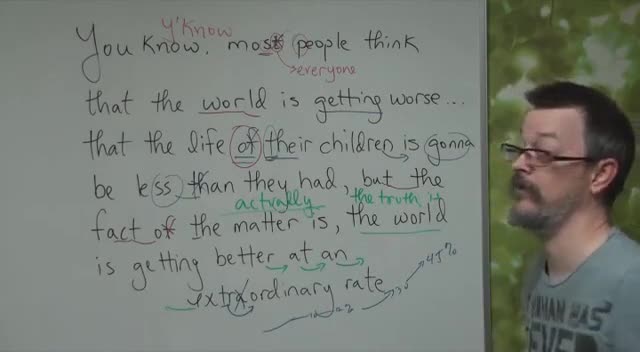 y'know
You know, most people think
everyone
that the world is getting worse...
that the life of their children is gonna
be less than they had, but the
actually the truth is
fact of the matter is, the world
is getting better at an
45%
extraordinary rate
HAS